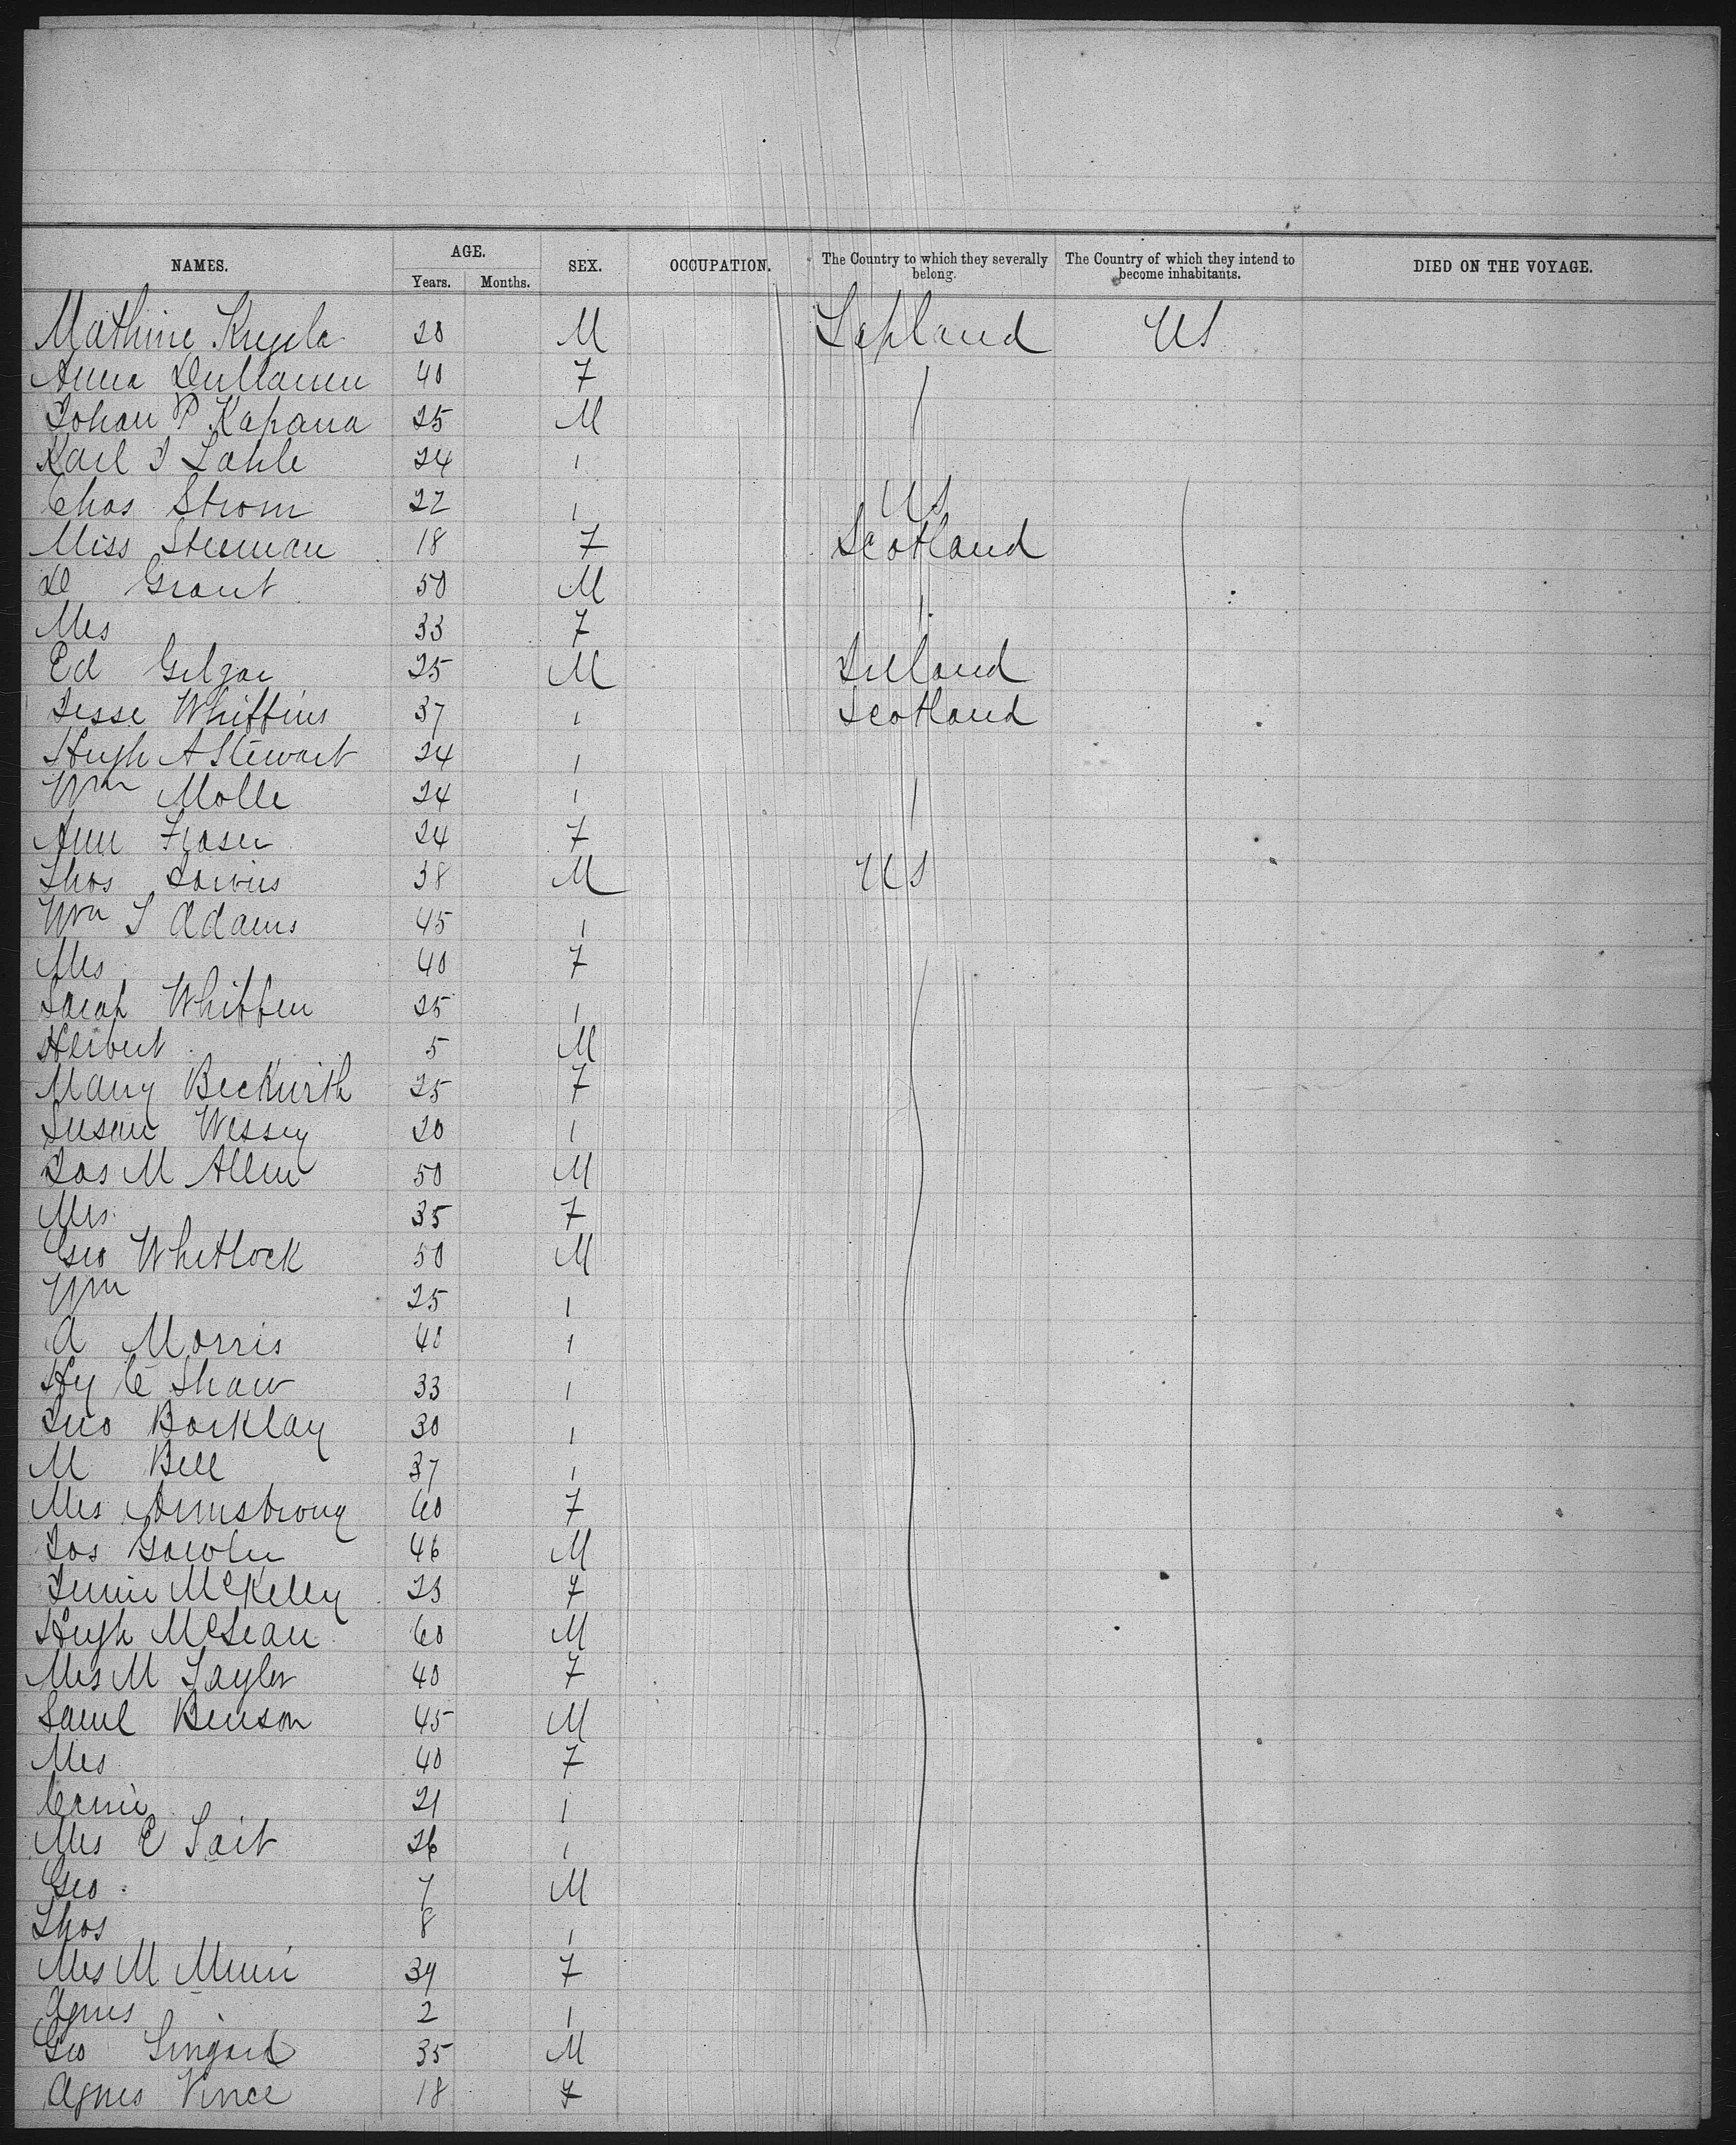 NAMES. AGE. Years. Months. SEX. OCCUPATION. The Country to which they severally belong. The Country of which they intend to become inhabitants. DIED ON THE VOYAGE.
20 M Lapland US
Anna 40 F
Johan P Kapana 25 M
Karl J 24 ı
Chas Strom 22 ı US
Miss 18 F Scotland
D Grant 50 M
Mrs 33 F ı
Ed 25 M Ireland
Jesse Whiffins 37 ı Scotland
Hugh A Stewart 24 ı
Wm Molle 24 ı ı
Ann Fraser 24 F
Thos 38 M US
Wm S Adams 45 ı
Mrs 40 F
Sarah Whiffen 25 ı
Herbert 5 M
Mary Beckwith 25 F
Susan Wessey 20 ı
Jas M Allen 50 M
Mrs 35 F
Geo Whitlock 50 M
Wm 25 ı
A Morris 40 ı
Hy C Shaw 33 ı
Jno Barklay 30 ı
M Bell 37 ı
Mrs Armstrong 60 F
Jas 46 M
Jennie McKelley F
Hugh McLean 60 M
Mrs M Taylor 40 F
Saml Benson 45 M
Mrs 40 F
21 ı
Mrs E Tait 26 ı
Geo 7 M
Thos 8 ı
Mrs M F
Agnes 2 ı
Geo 35 M
Agnes Vince 18 F